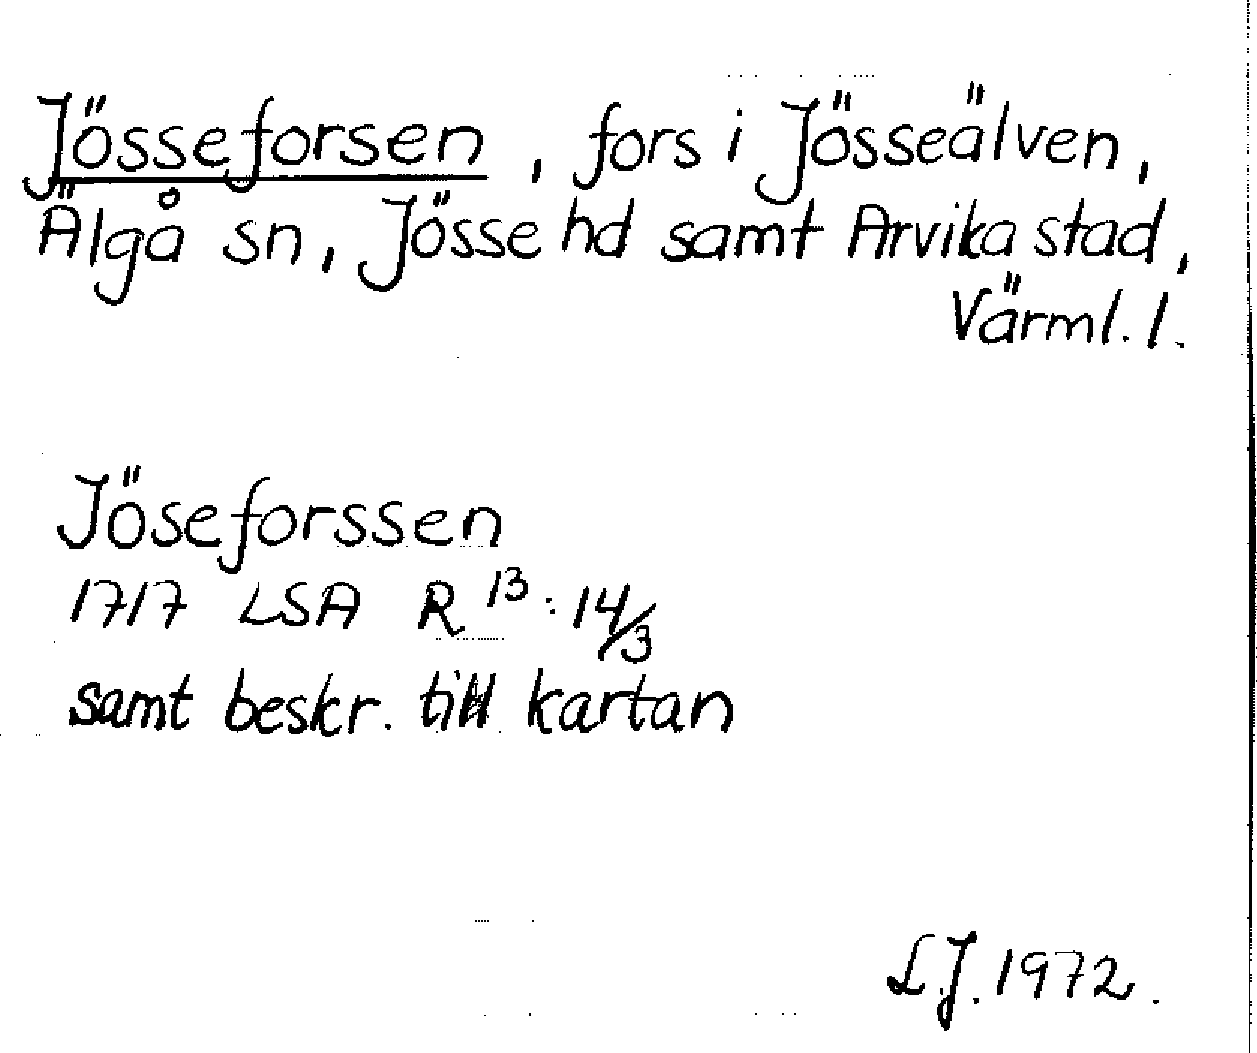 Jösseforsen, fors i Jösseälven,
Älgå sn, Jösse hd samt Arvika stad,
Värml. l.
Jöseforssen
1717 LSA R 13:14/3
samt beskr. till kartan
L.J. 1972.